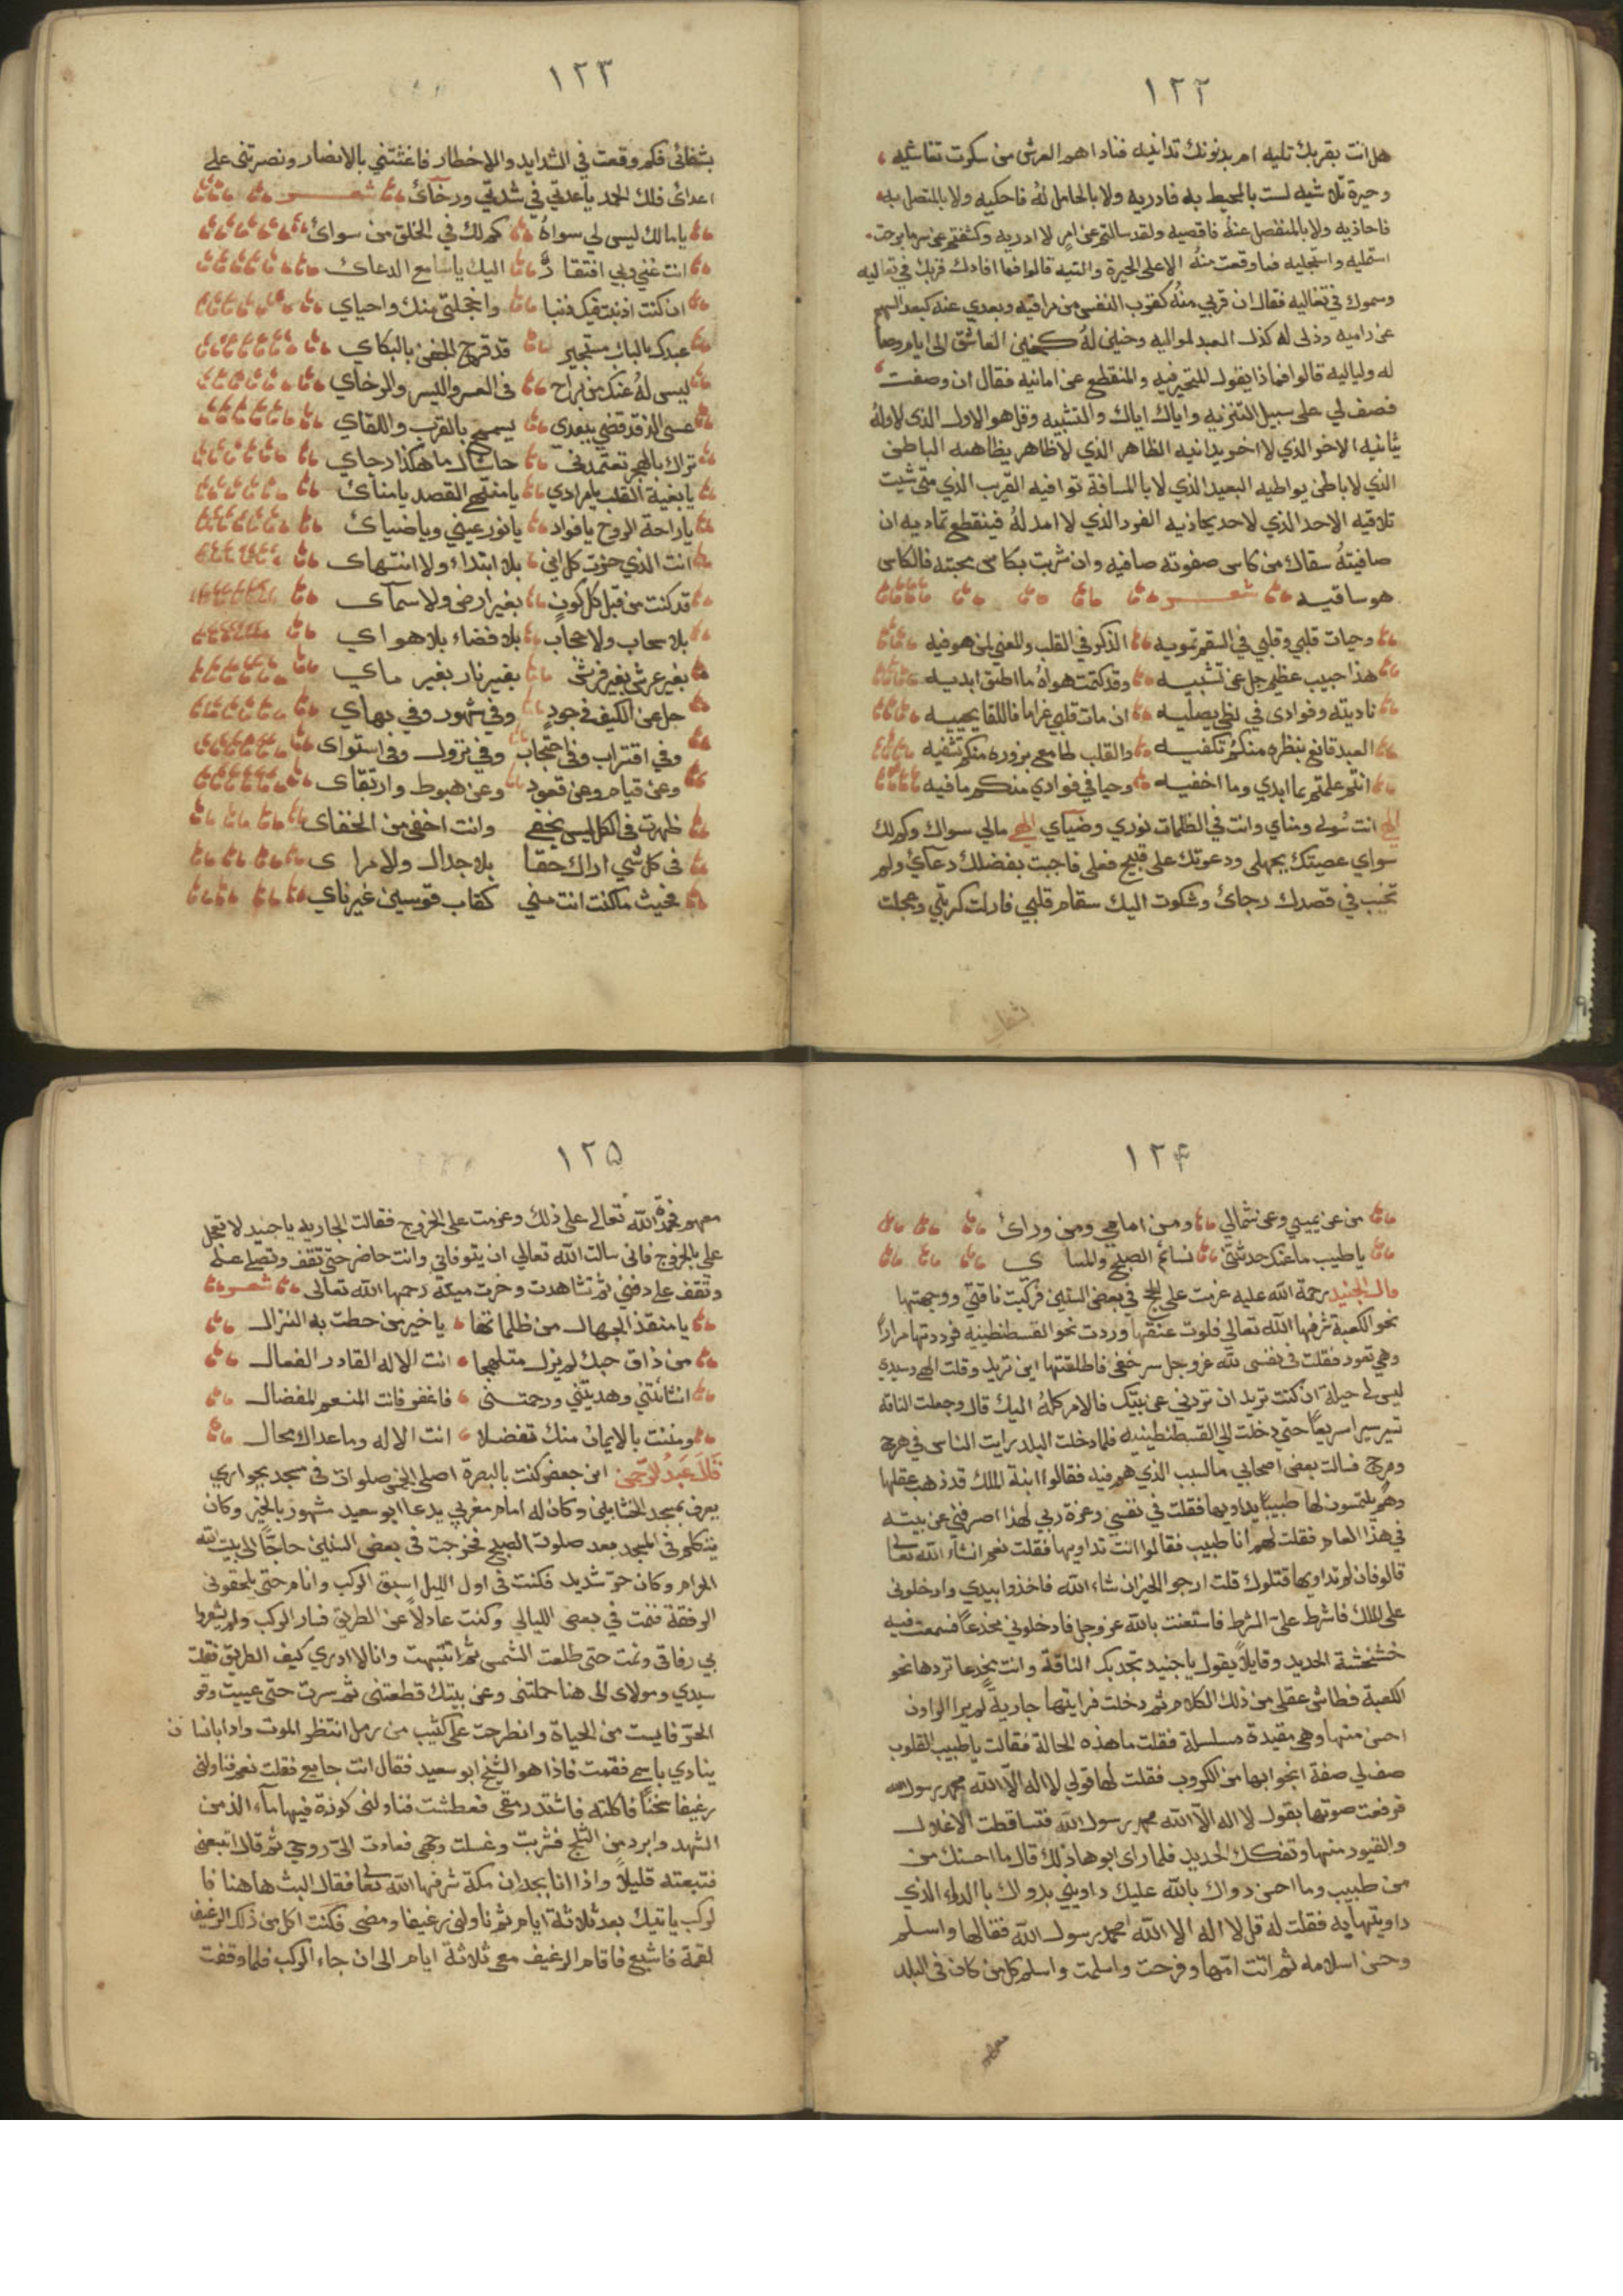 ١٢٢
هل انت بقربك تليه ام بدنونك تدانيه فناداهم العرش من سكوت تغاشيه
وحيرة تلاشيه لست بالمحيط به فادريه ولا بالحامل له فاحكيه ولا بالمتصل به
فاحاذيه ولا بالمنفصل عنه فاقصيه ولقد سالتم عن امر لا ادريه وكشفتم عن سر ما برحت
استمليه واستجليه فما وقعت منه الا على الحيرة والتيه قالوا فما افادك قربك في تعاليه
وسموك في تغاليه فقال ان قربي منه كقرب النفس من مراقيه وبعدي عنه كبعد السهم
عن راميه وذلى له كذل العبد لمواليه وحنيني له كحنين العاشق الى ايام وصا
له ولياليه قالوا فماذا يقول المتحير فيه والمنقطع عن امانيه فقال ان وصفت
فصف لي على سبيل التنزيه واياك اياك والتشبيه وقل هو الاول الذى لا اوله
ثانيه الاخر الذي لا اخر يدانيه الظاهر الذي لا ظاهر يظاهه الباطن
الذي لا باطن يواطيه البعيد الذي لا بالمسافة توافيه القريب الذي متى شيت
تلاقيه الاحد الذي لا حد يحاذيه الفرد الذي لا امد له فينقطع تماديه ان
صافيته سقاك من كاس صفوته صافيه وان شربت بكاس محبته فالكاس
هو ساقيه شعر
وحيات قلبي وقلبي في السقم تمويه الذكر في القلب والمعنى لمن هو فيه
هذا حبيب عظيم جل عن تشبيه وقد كتمت هواه ما اطيق ابديه
ناديته وفوادى في لظى يصليه ان مات قلبي غراما فاللقا يحييه
العبد قانع بنظره منكم تكفيه والقلب طامع بزوره منكم تشفيه
انتم علمتم بما ابدي وما اخفيه وحيا في فوادي منكم ما فيه
الهي انت سولى ومناي وانت في الظلمات نوري وضيآي الهي مالي سواك وكم لك
سواي عصيتك بجهلى ودعوتك على قبيح فعلى فاجبت بفضلك دعآئ ولم
تخيب في قصدك رجائ وشكوت اليك سقام قلبي فازلت كربتي وعجلت
شفائ
١٢٣
بشفائى فكم وقعت في الشدايد والاخطار فاغثتني بالانصار ونصرتنى على
اعدائ فلك الحمد ياعدتي في شدتي ورخآئ شعر
يا مالك ليس لي سواه كم لك في الخلق من سوائ
انت غني وبي افتقار اليك يا سامع الدعائ
ان كنت اذنبت فيك ذنبا واخجلتي منك واحياي
عبدك بالباب مستجير قد قرح الجفن بالبكاي
ليس له عنك من براح فى العسر واليسر والرخآي
عسى الذ قد قضى ببعدي يسمح بالقرب واللقاي
تراك بالهجر تعتمدنى حاشاك ما هكذا رجاي
يا بغية القلب يا مرادي يا منتهى القصد يا منائ
يا راحة الروح يا فواد يا نور عيني ويا ضيائ
انت الذي حزت كل اني بلا ابتداء ولا انتهاى
قد كنت من قبل كل كون بغير ارض ولا سمآى
بلا سحاب ولا حجاب بلا فضاء بلا هواي
بغير عرش بغير فرش بغير نار بغير ماي
جل عن الكيف فى جود وفي شهور وفي بهاي
وفي اقتراب وفى احتجاب وفي نزول وفى استواى
وعن قيام وعن قعود وعن هبوط وارتقاى
ظهرت فى الكل ليس يخفى وانت اخفى من الخفاى
فى كل شي اراك حقا بلا جدال ولا مراى
فحيث ما كنت انت مني كقاب قوسين غير ناي
١٢٤
من عن يميني وعن شمالي ومن امامي ومن ورائ
يا طيب ما عنك حدثتني نسائم الصبح والمساى
قال الجنيد رحمة الله عليه عزمت على الحج في بعض السنين فركبت ناقتي ووجهتها
نحو الكعبة شرفها الله تعالى فلوت عنقها وردت نحو القسطنطينيه فرددتها مرارا
وهي تعود فقلت فى نفسى لله عز وجل سر خفى فاطلقتها اين تريد وقلت الهى وسيدي
ليس لى حيلة ان كنت تريد ان تردني عن بيتك فالامر كله اليك قال وجعلت الناقه
تسير سيرا سريعا حتى دخلت الى القسطنطينيه فلما دخلت البلد رايت الناس في هرج
ومرج فسالت بعض اصحابي ما السبب الذي هم فيه فقالوا ابنة الملك قد ذهب عقلها
وهم يلتمسون لها طبيبا يداويها فقلت في نفسي وعزة ربي لهذا اصرفني عن بيته
في هذا العام فقلت لهم انا طبيب فقالوا انت تداويها فقلت نعم انشاء الله تعالى
قالو فان لم تداويها قتلوك قلت ارجو الخير ان شاء الله فاخذوا بيدي وادخلونى
على الملك فاشرط على الشرط فاستعنت بالله عز وجل فادخلوني مخدعا فسمعت فيه
خشخشة الحديد وقايلا يقول يا جنيد تجد بك الناقة وانت بخدعا تردها نحو
الكعبة فطاش عقلى من ذلك الكلام ثم دخلت فرايتها جارية لم ير الراون
احسن منها وهي مقيدة مسلسلة فقلت ما هذه الحالة فقالت يا طبيب القلوب
صف لي صفة انجوا بها من الكروب فقلت لها قولي لا اله الا الله محمد رسول الله
فرفعت صوتها بقول لا اله الا الله محمد رسول الله فتساقطت الاغلال
والقيود منها وتفكك الحديد فلما راى ابوها ذلك قال ما احسنك من
من طبيب وما احسن دواك بالله عليك داويني بدواك با الدواء الذي
داويتها به فقلت له قل لا اله الا الله محمد رسول الله فقالها واسلم
وحسن اسلامه ثم اتت امها وفرحت واسلمت واسلم كل من كان فى البلد
معهم
١٢٥
معهم فحمدة الله تعالى على ذلك وعزمت على الخروج فقالت الجاريه يا جنيد لا تعجل
على بالخروج فانى سالت الله تعالي ان يتوفاني وانت حاضر حتى تقف وتصلى عنه
وتقف على دفني ثم تشاهدت وخرت ميتة رحمها الله تعالى شعر
يا منقذ الجهال من ظلماتها يا خير من حطت به النزال
من ذاق حبك لم يزل متلهجا انت الاله القادر الفعال
انشأتني وهديتني ورحمتنى فاغفر فانت المنعم المفضال
ومننت بالايمان منك تفضلا انت الاله وما عداك محال
قال عبد الرحمن ابن جعفر كنت بالبصرة اصلى الخمس صلوات فى مسجد بجواري
يعرف بمسجد الخشابين وكان له امام مغربي يدعا ابو سعيد مشهور بالخير وكان
يتكلم فى المسجد بعد صلوة الصبح فخرجت في بعض السنين حاجا الى بيت الله
الحرام وكان حر شديد فكنت فى اول الليل اسبق الركب وانام حتى يلحقونى
الرفقة فنمت في بعض الليالي وكنت عادلا عن الطريق فسار الركب ولم يشعروا
بي رفاقى ونمت حتى طلعت الشمس ثم انتبهت وانا لا ادري كيف الطريق فقلت
سيدي ومولاى الى هنا حملتنى وعن بيتك قطعتنى ثم سرت حتى عييت وقو
الحر فايست من الحياة وانطرحت على كثيب من رمل انتظر الموت واذا بانسان
ينادي باسمي فقمت فاذا هو الشيخ ابو سعيد فقال انت جايع فقلت نعم فناولنى
رغيفا سخنا فاكلته فاشتد رمقى فعطشت فناولنى كوزة فيها مآء الذ من
الشهد وابرد من الثلج فشربت وغسلت وجهى فعادت الى روحى ثم قال اتبعنى
فتبعته قليلا واذا انا بجدران مكة شرفها الله تعا فقال البث هاهنا فا
لركب ياتيك بعد ثلاثة ايام ثم ناولنى رغيفا ومضى فكنت اكل من ذلك الرغيف
لقمة فاشبع فاقام الرغيف معى ثلاثة ايام الى ان جاء الركب فلما وقفت